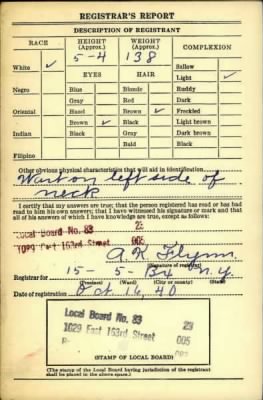 REGISTRAR'S REPORT
DESCRIPTION OF REGISTRANT
RACE HEIGHT (Approx.) WEIGHT (Approx.) COMPLEXION
White ✓ 5-4 138 Sallow
EYES HAIR Light ✓
Negro Blue Blonde Ruddy
Gray Red Dark
Oriental Hazel Brown ✓ Freckled
Brown ✓ Black Light brown
Indian Black Gray Dark brown
Bald Black
Filipino
Other obvious physical characteristics that will aid in identification
Wart on left side of
neck
I certify that my answers are true; that the person registered has read or has had
read to him his own answers; that I have witnessed his signature or mark and that
all of his answers of which I have knowledge are true, except as follows:
Local Board No. 83
1629 East 163rd Street 005
A. Flynn
(Signature of registrar)
Registrar for 15 - 5 - Bx N.Y.
(Precinct) (Ward) (City or county) (State)
Date of registration Oct 16, 40
Local Board No. 83
1629 East 163rd Street 005
(STAMP OF LOCAL BOARD)
(The stamp of the Local Board having jurisdiction of the registrant
shall be placed in the above space.)